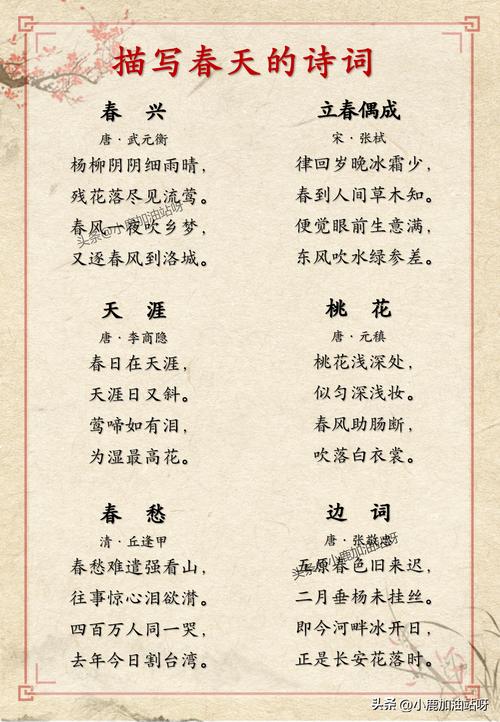 描写春天的诗词
春 兴
唐·武元衡
杨柳阴阴细雨晴，
残花落尽见流莺。
春风一夜吹乡梦，
又逐春风到洛城。
立春偶成
宋·张栻
律回岁晚冰霜少，
春到人间草木知。
便觉眼前生意满，
东风吹水绿参差。
天 涯
唐·李商隐
春日在天涯，
天涯日又斜。
莺啼如有泪，
为湿最高花。
桃 花
唐·元稹
桃花浅深处，
似匀深浅妆。
春风助肠断，
吹落白衣裳。
春 愁
清·丘逢甲
春愁难遣强看山，
往事惊心泪欲潸。
四百万人同一哭，
去年今日割台湾。
边 词
唐·张敬忠
五原春色旧来迟，
二月垂杨未挂丝。
即今河畔冰开日，
正是长安花落时。
头条@小鹿加油站呀
头条@小鹿加油站呀
头条 @小鹿加油站呀